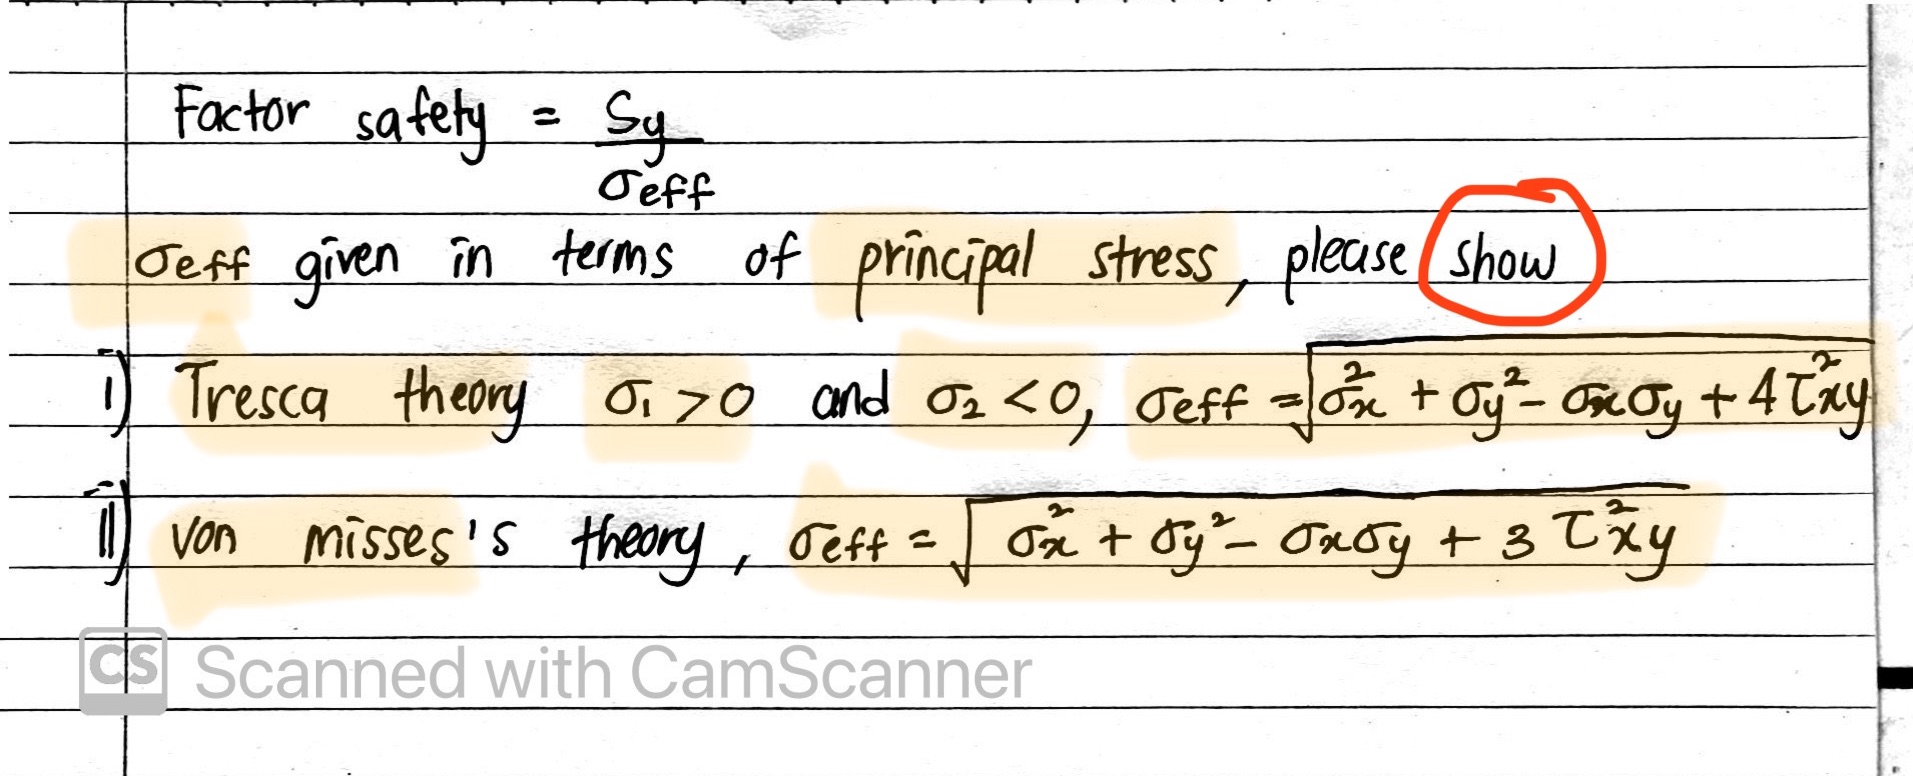 Factor safety = Sy / σeff
σeff given in terms of principal stress, please show
i) Tresca theory σ₁ > 0 and σ₂ < 0, σeff = √(σx² + σy² - σxσy + 4τ²xy)
ii) von misses's theory, σeff = √(σx² + σy² - σxσy + 3τ²xy)
CS Scanned with CamScanner